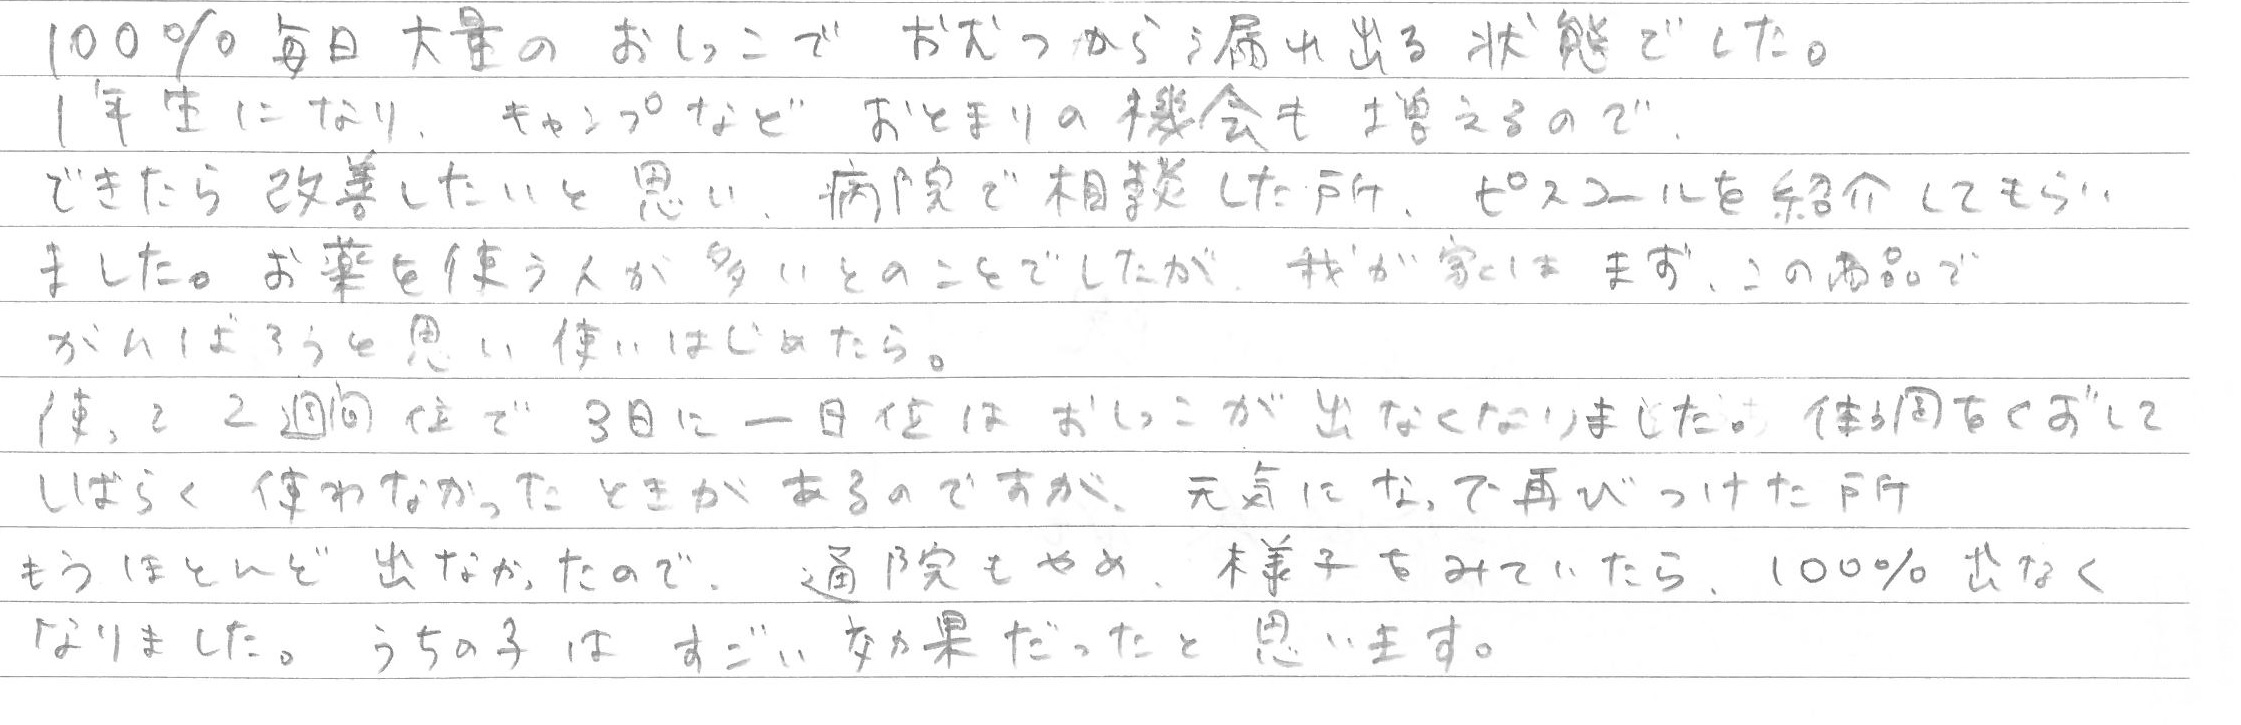 100%毎日大量のおしっこで おむつから漏れ出る状態でした。
1年生になり、キャンプなど おとまりの機会も増えるので、
できたら改善したいと思い、病院で相談した所、ピスコールを紹介してもらい
ました。お薬を使う人が多いとのことでしたが、我が家はまず、この商品で
がんばろうと思い使いはじめたら。
使って2週間位で3日に一日位はおしっこが出なくなりました。体調をくずして
しばらく使わなかったときがあるのですが、元気になって再びつけた所
もうほとんど出なかったので、通院もやめ、様子をみていたら、100%出なく
なりました。うちの子はすごい効果だったと思います。